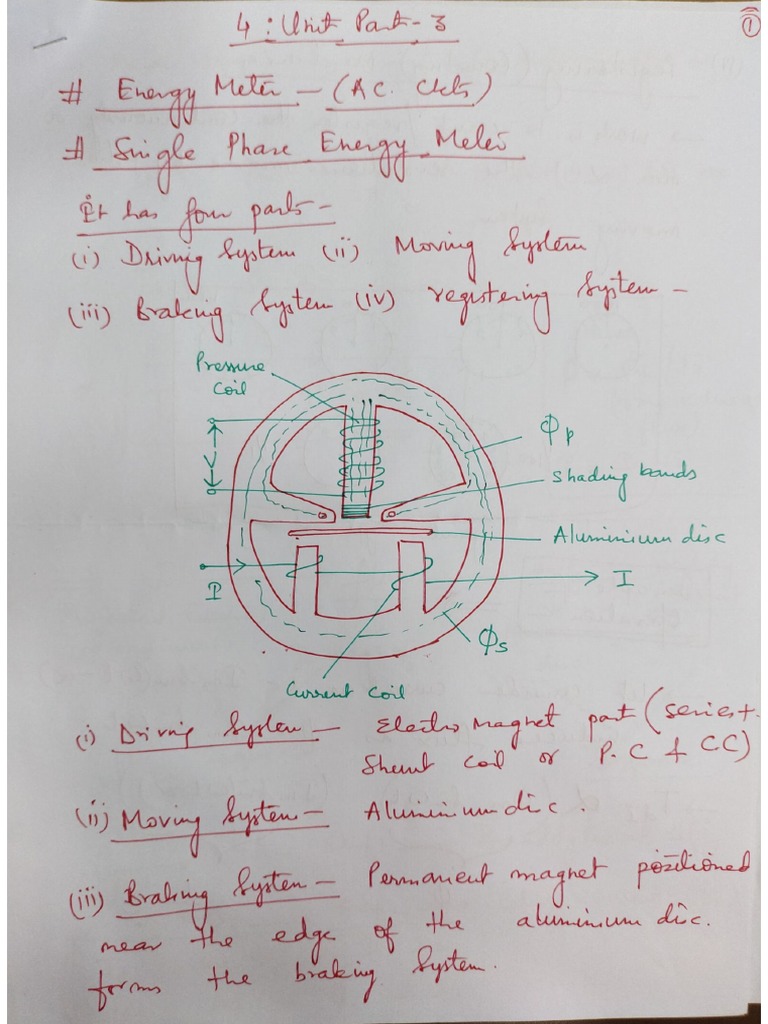 4 : Unit Part - 3
1
# Energy Meter - (A.C. Ckts)
# Single Phase Energy Meter
It has four parts -
(i) Driving System (ii) Moving System
(iii) Braking System (iv) registering System -
Pressure
coil
V
Φp
Shading bands
Aluminium disc
I
I
Φs
Current coil
(i) Driving System - Electro Magnet part (series +
Shunt coil or P.C & CC)
(ii) Moving System - Aluminium disc.
(iii) Braking System - Permanent magnet positioned
near the edge of the aluminium disc.
forms the braking System.